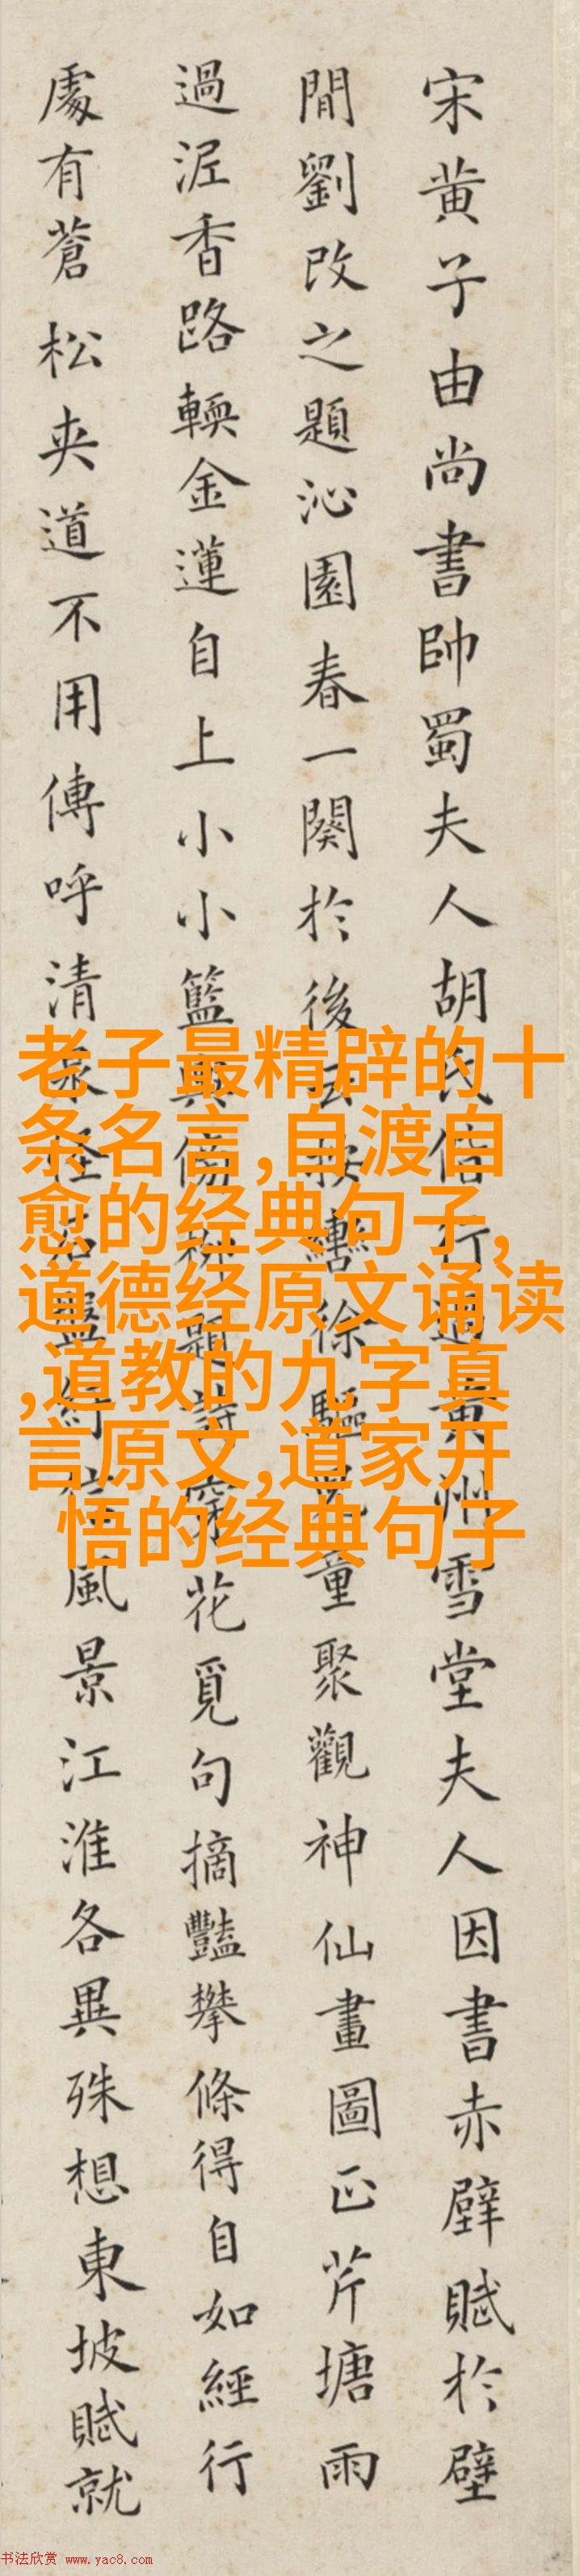 宋黄子由尚書帥蜀夫人胡氏偕行過黄州雪堂夫人因書赤壁賦於壁
間劉改之題沁園春一闋於後云按轡徐驅兒童聚觀神仙畫圖正芹塘雨
過泥香路輭金蓮自上小小籃輿傍柳題詩穿花覓句摘豔攀條得自如經行
處有蒼松夾道不用傳呼清泉怪石盤紆信風景江淮各異殊想東坡賦就
老子最精辟的十
条名言,自渡自
愈的经典句子,
道德经原文诵读
,道教的九字真
言原文,道家开
悟的经典句子
书法欣赏 www.yac8.com